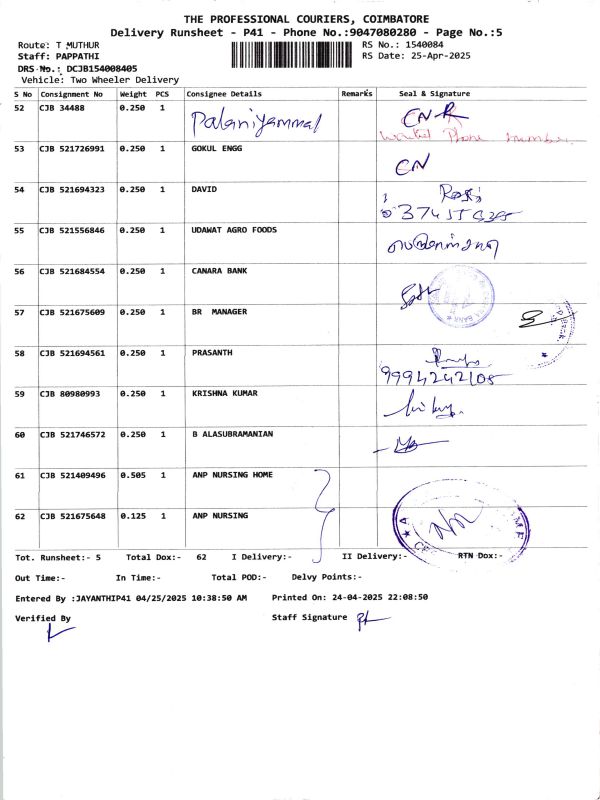 THE PROFESSIONAL COURIERS, COIMBATORE
Delivery Runsheet - P41 - Phone No.:9047080280 - Page No.:5
Route: T MUTHUR RS No.: 1540084
Staff: PAPPATHI RS Date: 25-Apr-2025
DRS No.: DCJB154008405
Vehicle: Two Wheeler Delivery
S No Consignment No Weight PCS Consignee Details Remarks Seal & Signature
52 CJB 34488 0.250 1 Palaniyammal CNR
wanted Phone number.
53 CJB 521726991 0.250 1 GOKUL ENGG CN
54 CJB 521694323 0.250 1 DAVID
55 CJB 521556846 0.250 1 UDAWAT AGRO FOODS
56 CJB 521684554 0.250 1 CANARA BANK
57 CJB 521675609 0.250 1 BR MANAGER
58 CJB 521694561 0.250 1 PRASANTH
9994242105
59 CJB 80980993 0.250 1 KRISHNA KUMAR
60 CJB 521746572 0.250 1 B ALASUBRAMANIAN
61 CJB 521409496 0.505 1 ANP NURSING HOME
62 CJB 521675648 0.125 1 ANP NURSING
Tot. Runsheet:- 5 Total Dox:- 62 I Delivery:- II Delivery:- RTN Dox:-
Out Time:- In Time:- Total POD:- Delvy Points:-
Entered By :JAYANTHIP41 04/25/2025 10:38:50 AM Printed On: 24-04-2025 22:08:50
Verified By Staff Signature